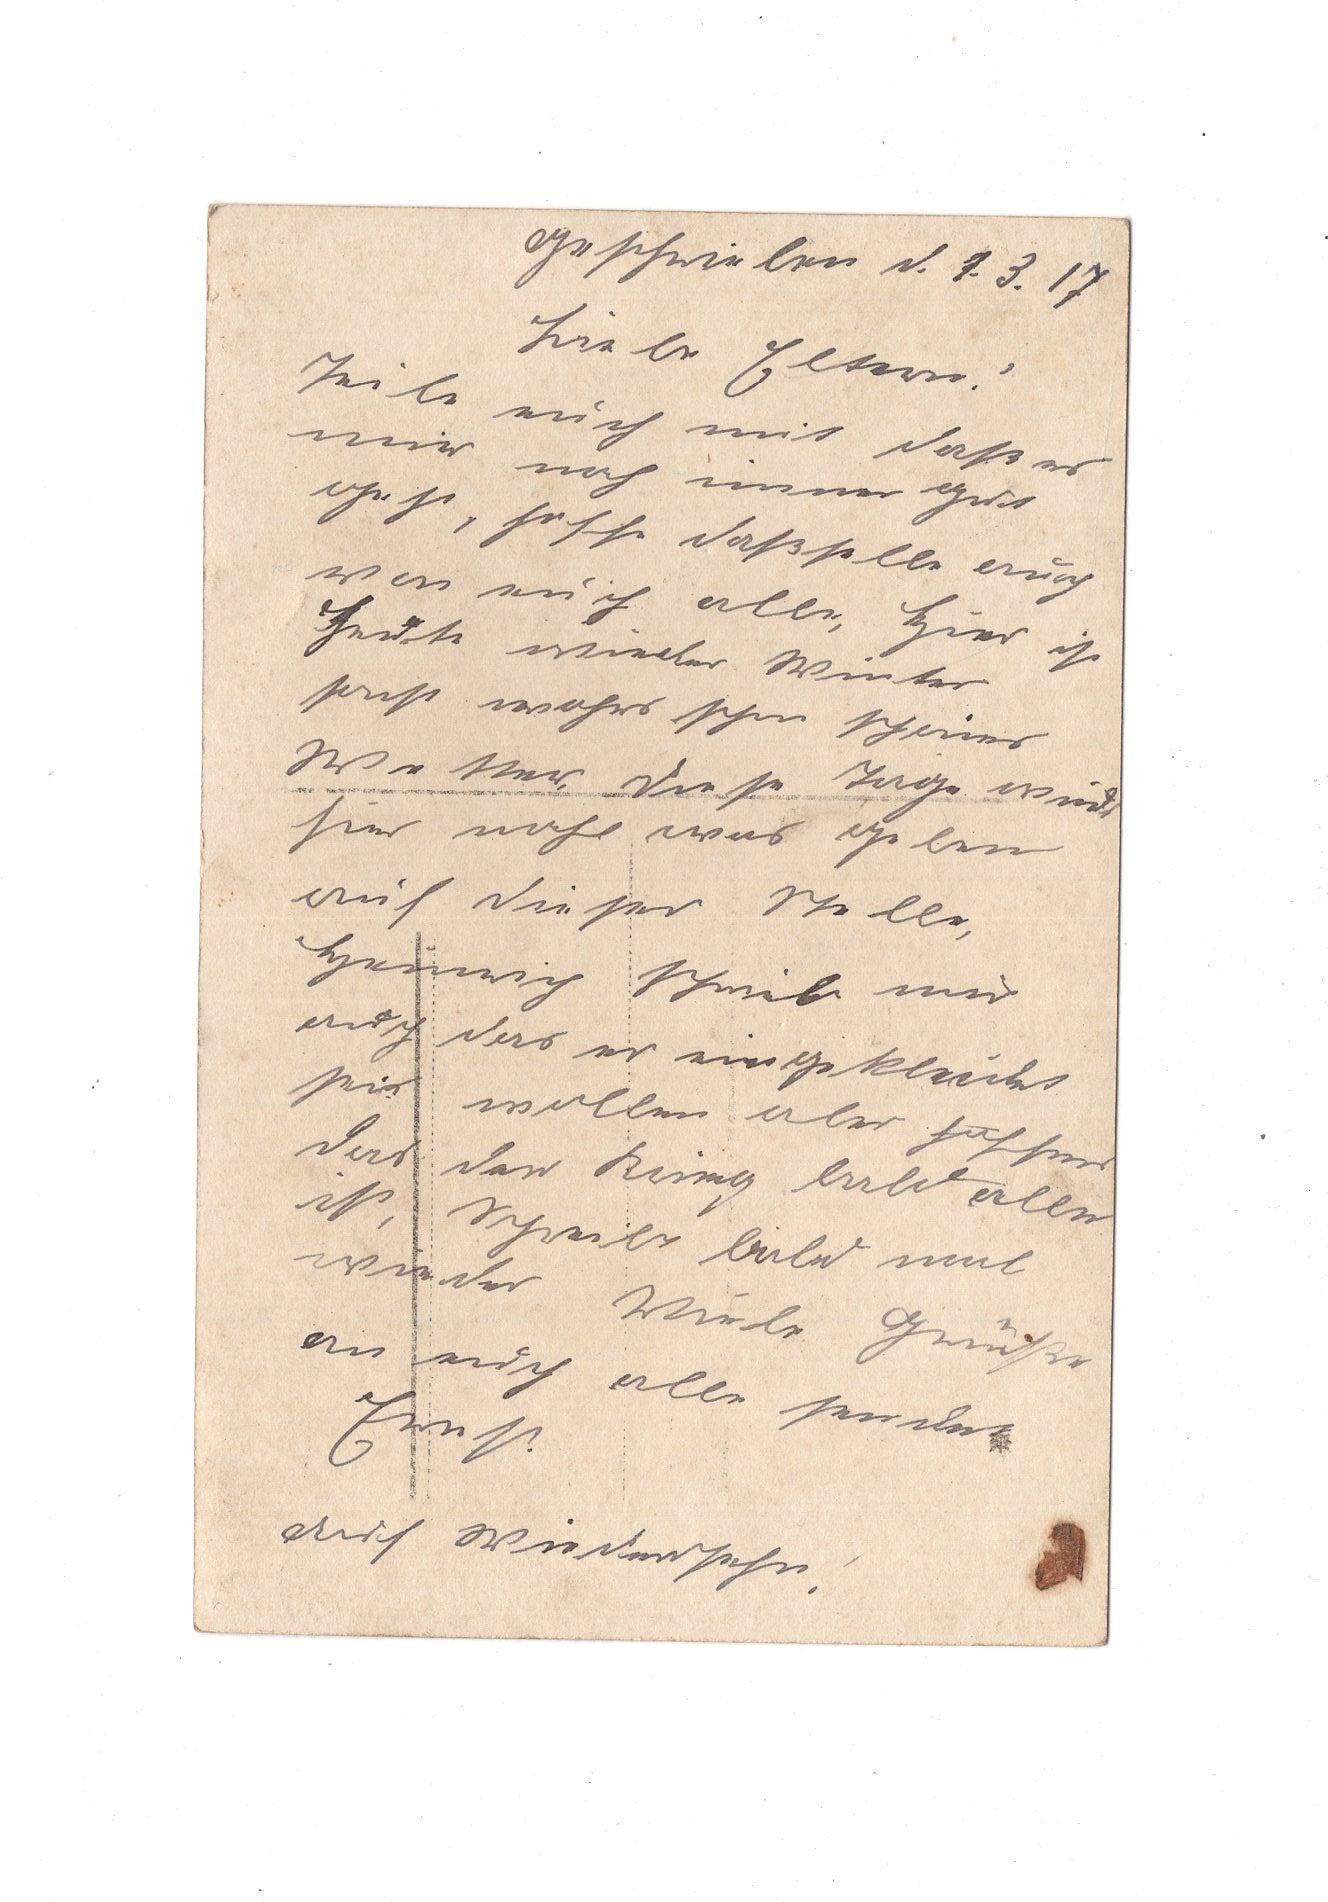 Geschrieben d. 9. 3. 17
Liebe Eltern!
Teile euch mit daß es
mir noch immer gut
geht, hoffe daßselbe auch
von euch alle, Hier ist
Heute wieder Winter
sonst wahrs schon schönes
Wetter, diese Tage wirds
hier wohl was geben
auf dieser Stelle,
Heinrich schrieb mir
auch das er eingekleidet
sei wollen aber hoffen
das der Krieg bald alle
ist, Schreibt bald mal
wieder Viele Grüße
an euch alle sendet
Ernst.
auf Wiedersehn!